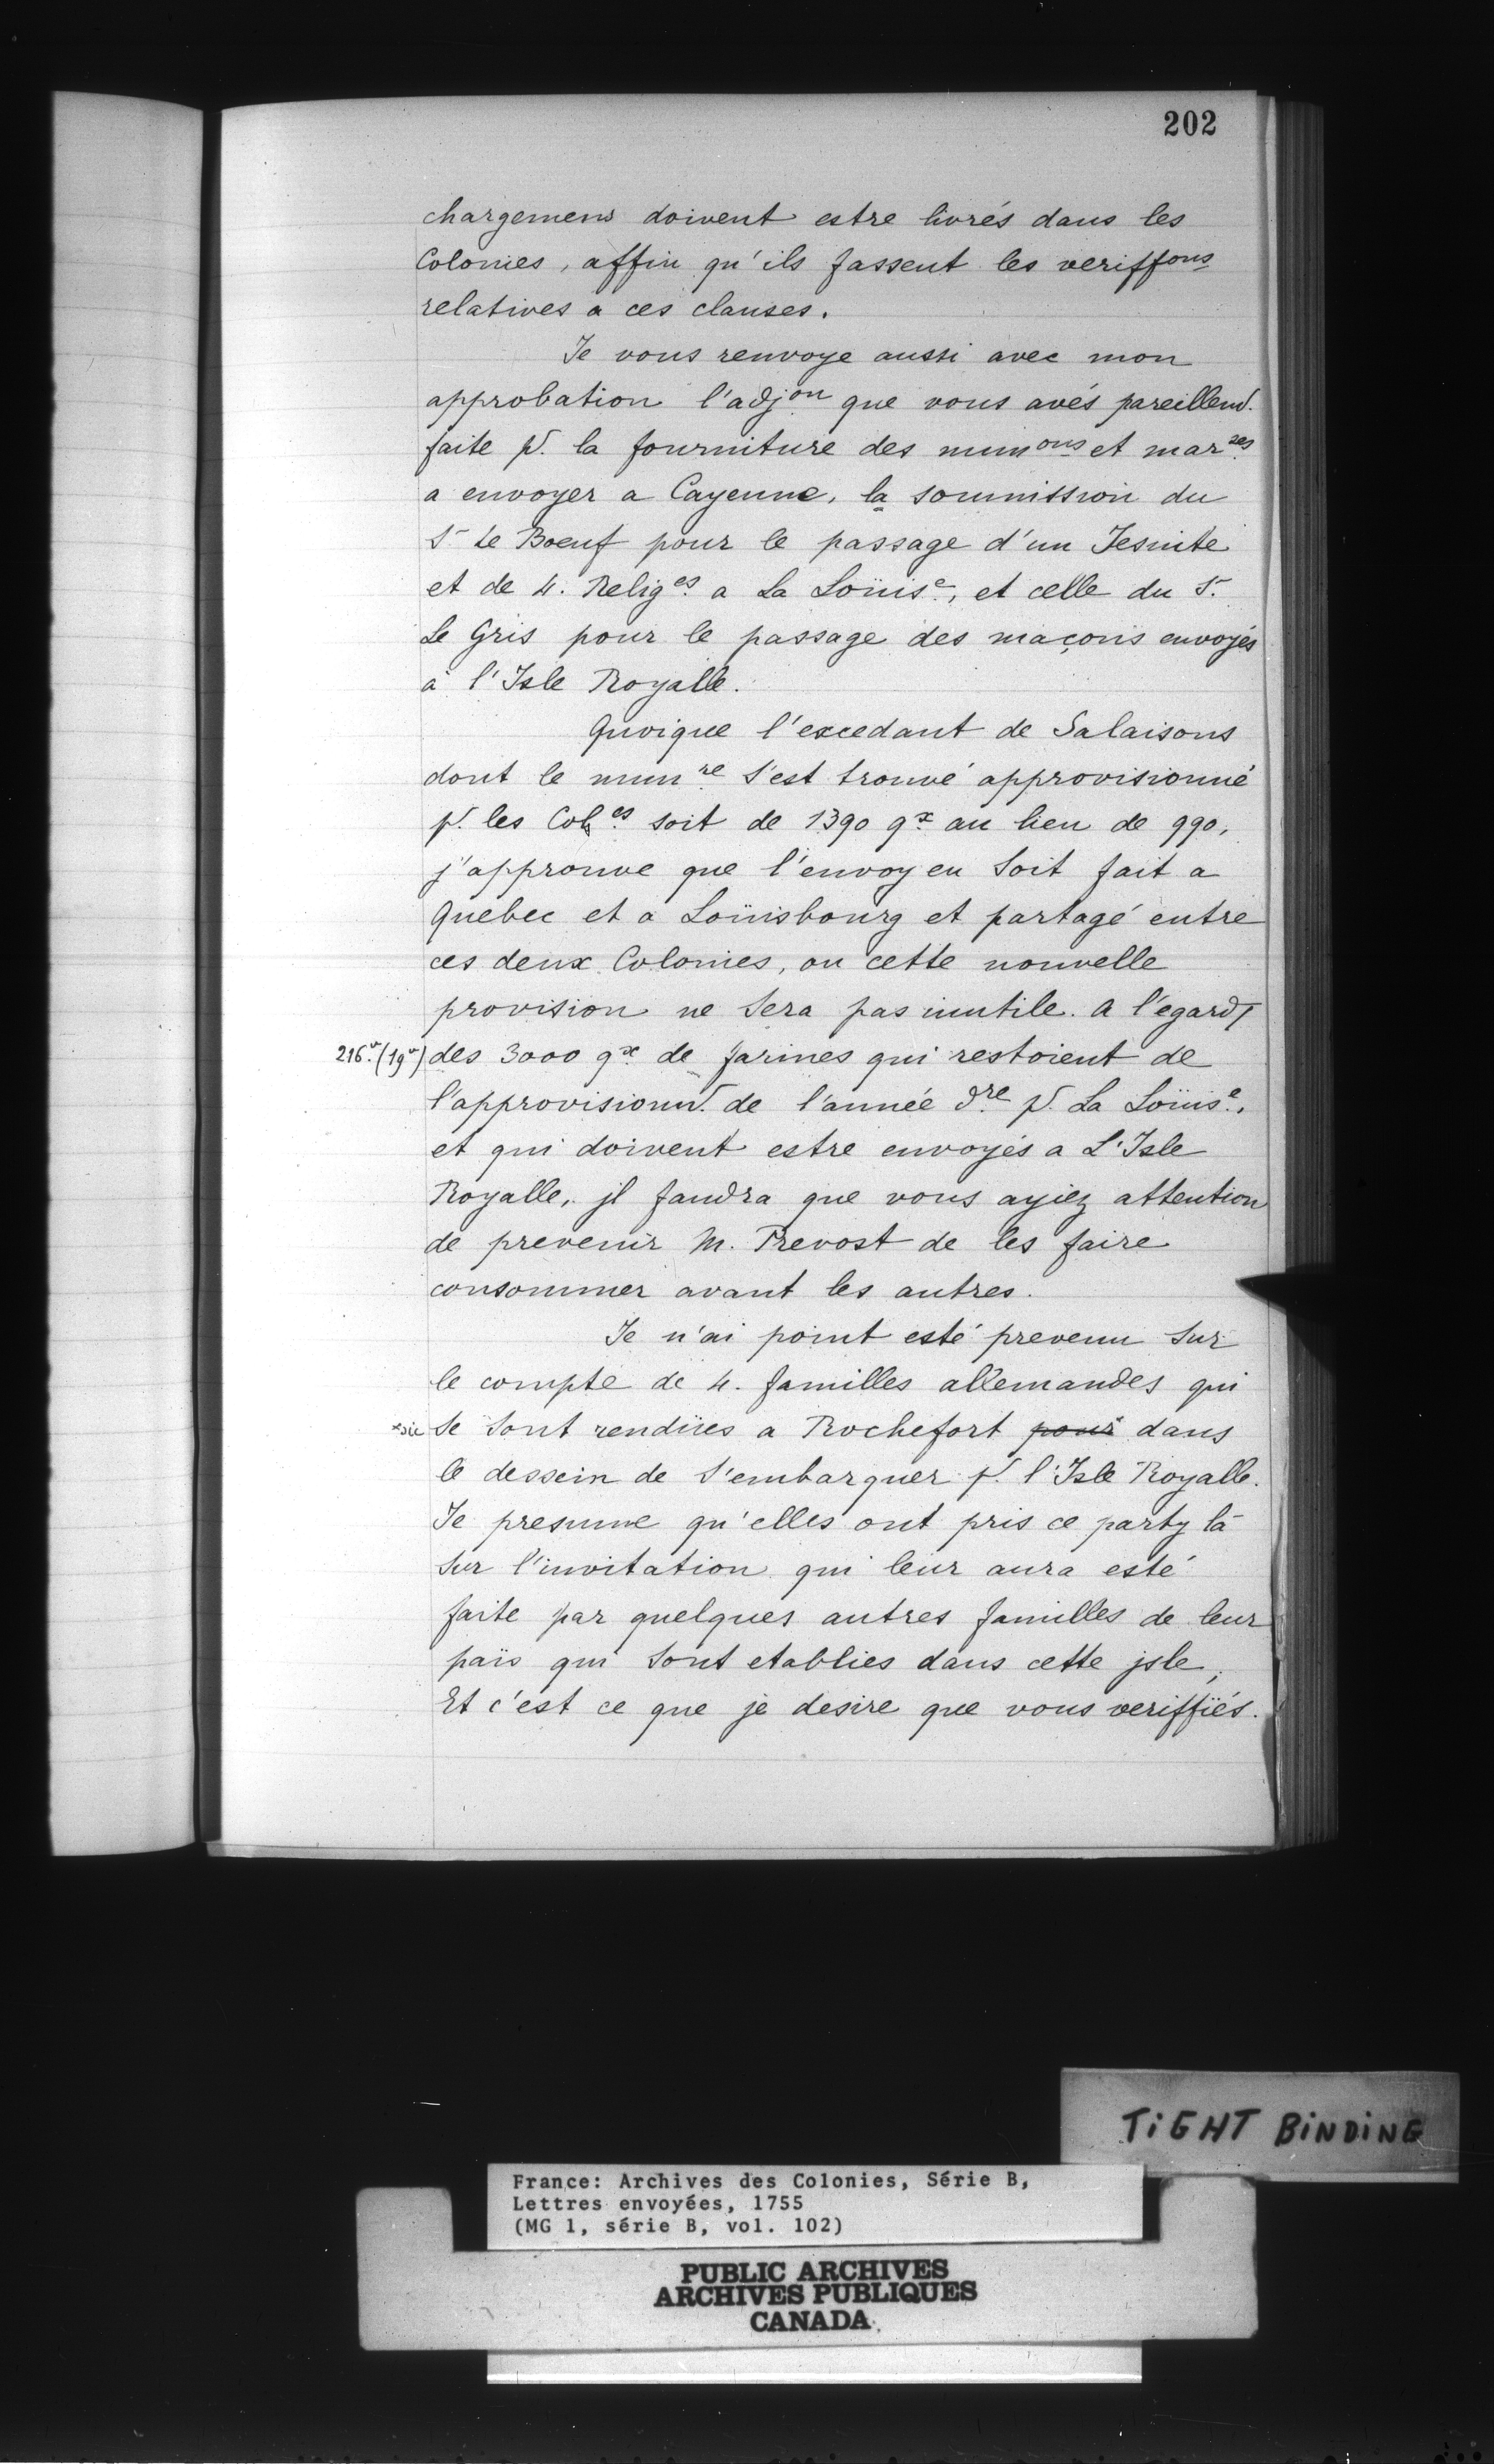 202
chargemens doivent estre livrés dans les
Colonies, affin qu'ils fassent les veriffons
relatives a ces clauses.
Je vous renvoye aussi avec mon
approbation l'adjon que vous avés pareillemt.
faite pr. la fourniture des munons et marses
a envoyer a Cayenne, la soumission du
Sr Le Boeuf pour le passage d'un Jesuite
et de 4. Religes a La Loüise, et celle du Sr.
Le Gris pour le passage des maçons envoyés
à l'Isle Royalle.
Quoique l'excedant de Salaisons
dont le munre s'est trouvé approvisionné
pr. les Coles soit de 1390 qx au lieu de 990,
j'approuve que l'envoy en soit fait a
Quebec et a Loüisbourg et partagé entre
ces deux Colonies, ou cette nouvelle
provision ne sera pas inutile. A l'egard/
216.v (19v) des 3000 qx de farines qui restoient de
l'approvisionnt. de l'année dre pr. La Loüise,
et qui doivent estre envoyés a L'Isle
Royalle, jl faudra que vous ayiez attention
de prevenir M. Prevost de les faire
consommer avant les autres.
Je n'ai point esté prevenu sur
le compte de 4. familles allemandes qui
xsic se sont rendües a Rochefort pour x dans
le dessein de s'embarquer pr. l'Isle Royalle.
Je presume qu'elles ont pris ce party là
sur l'invitation qui leur aura esté
faite par quelques autres familles de leur
païs qui sont etablies dans cette jsle;
Et c'est ce que je desire que vous veriffiés.
TIGHT BINDING
France: Archives des Colonies, Série B,
Lettres envoyées, 1755
(MG 1, série B, vol. 102)
PUBLIC ARCHIVES
ARCHIVES PUBLIQUES
CANADA